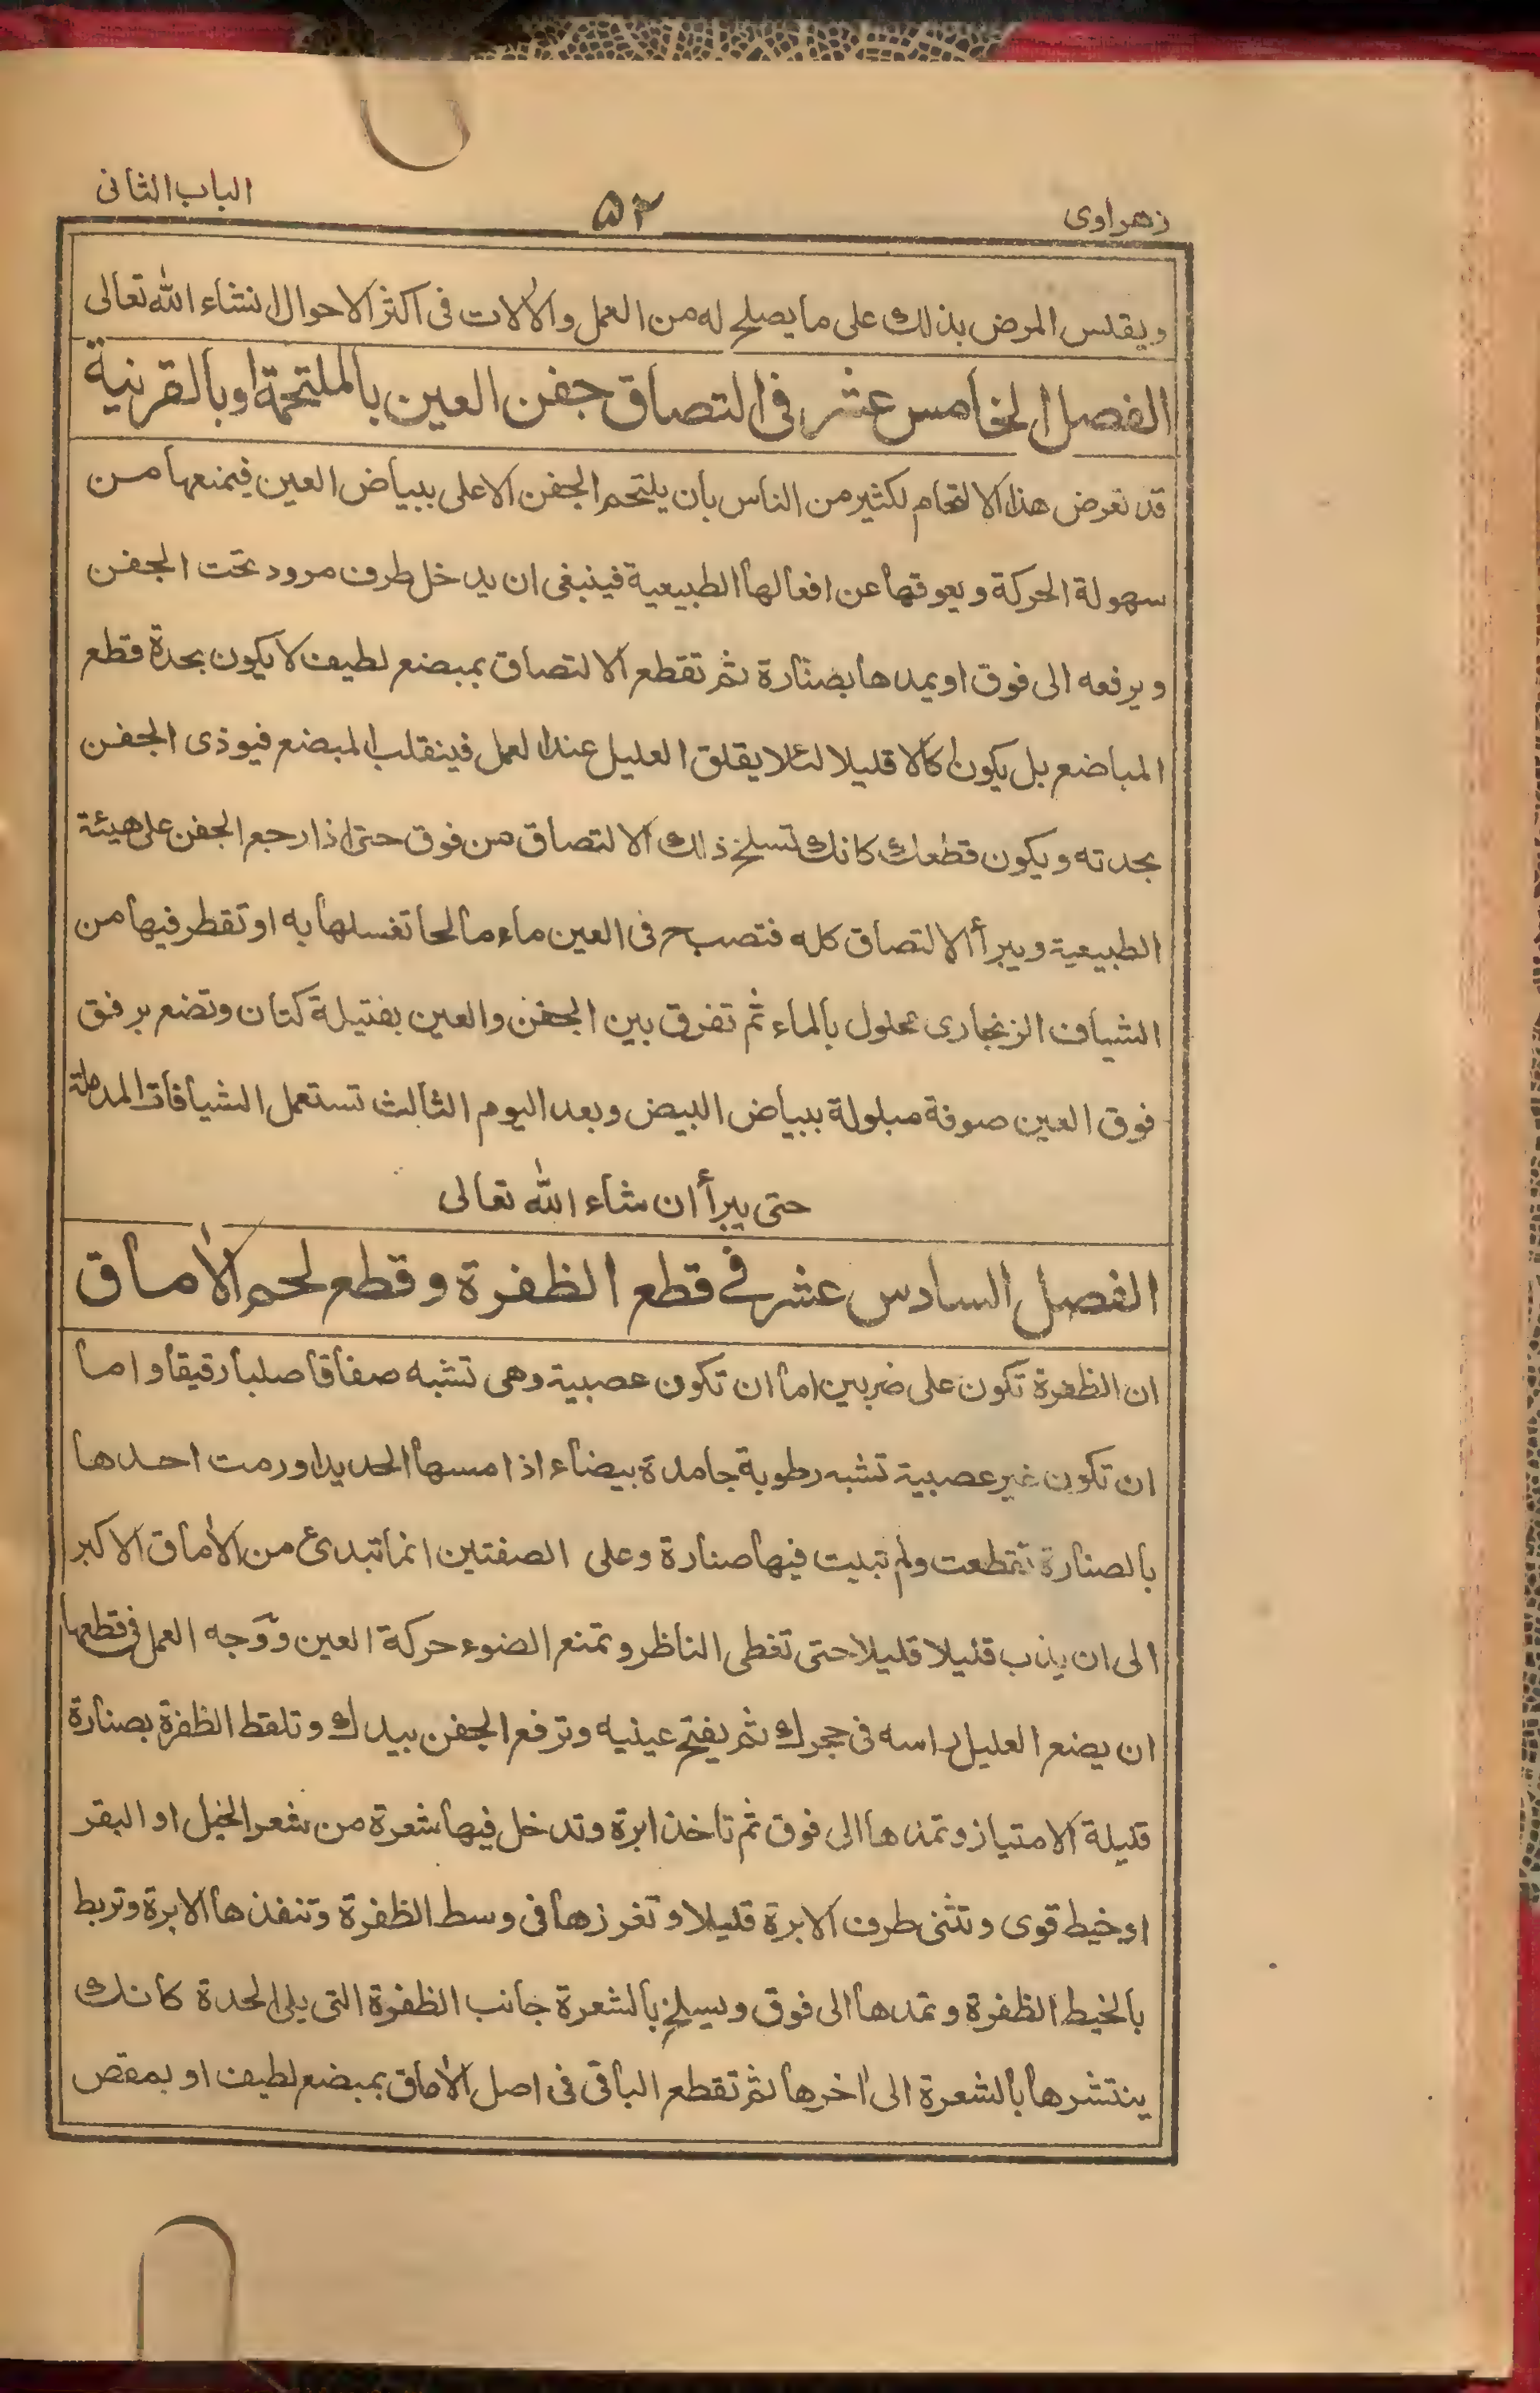 زهراوى
۵۲
الباب الثانى
ويقلس المرض بذلك على ما يصلح له من العمل والآلات فى اكثر الاحوال انشاء الله تعالى
الفصل الخامس عشر فى التصاق جفن العين بالملتحمة او بالقرنية
قد تعرض هذا الالتحام لكثير من الناس بان يلتحم الجفن الاعلى ببياض العين فيمنعها من
سهولة الحركة ويعوقها عن افعالها الطبيعية فينبغى ان يدخل طرف مرود تحت الجفن
ويرفعه الى فوق او يمدها بصنارة ثم تقطع الالتصاق بمبضع لطيف لا يكون بحدة قطع
المباضع بل يكون كالا قليلا لئلا يقلق العليل عند العمل فينقلب المبضع فيوذى الجفن
بحدته ويكون قطعك كانك تسلخ ذلك الالتصاق من فوق حتى اذا رجع الجفن على هيئة
الطبيعية ويبرأ الالتصاق كله فتصب فى العين ماء مالحا تغسلها به او تقطر فيها من
الشياف الزنجارى محلول بالماء ثم تفرق بين الجفن والعين بفتيلة كتان وتضع برفق
فوق العين صوفة مبلولة ببياض البيض وبعد اليوم الثالث تستعمل الشيافات المدملة
حتى يبرأ ان شاء الله تعالى
الفصل السادس عشر فى قطع الظفرة وقطع لحم الآماق
ان الظفرة تكون على ضربين اما ان تكون عصبية وهى تشبه صفاقا صلبا رقيقا واما
ان تكون غير عصبية تشبه رطوبة جامدة بيضاء اذا مسها الحديد اورمت احدها
بالصنارة تقطعت ولم تبيت فيها صنارة وعلى الصفتين انما تبدئ من الآماق الاكبر
الى ان يذب قليلا قليلا حتى تغطى الناظر وتمنع الضوء حركة العين ووجه العمل فى قطعها
ان يضع العليل راسه فى حجرك ثم يفتح عينيه وترفع الجفن بيدك وتلقط الظفرة بصنارة
قليلة الامتياز وتمدها الى فوق ثم تاخذ ابرة وتدخل فيها شعرة من شعر الخيل او البقر
او خيط قوى وتثنى طرف الابرة قليلا وتغرزها فى وسط الظفرة وتنفذها الابرة وتربط
بالخيط الظفرة وتمدها الى فوق ويسلخ بالشعرة جانب الظفرة التى يلى الحدة كانك
ينتشرها بالشعرة الى آخرها ثم تقطع الباقى فى اصل الآماق بمبضع لطيف او بمقص